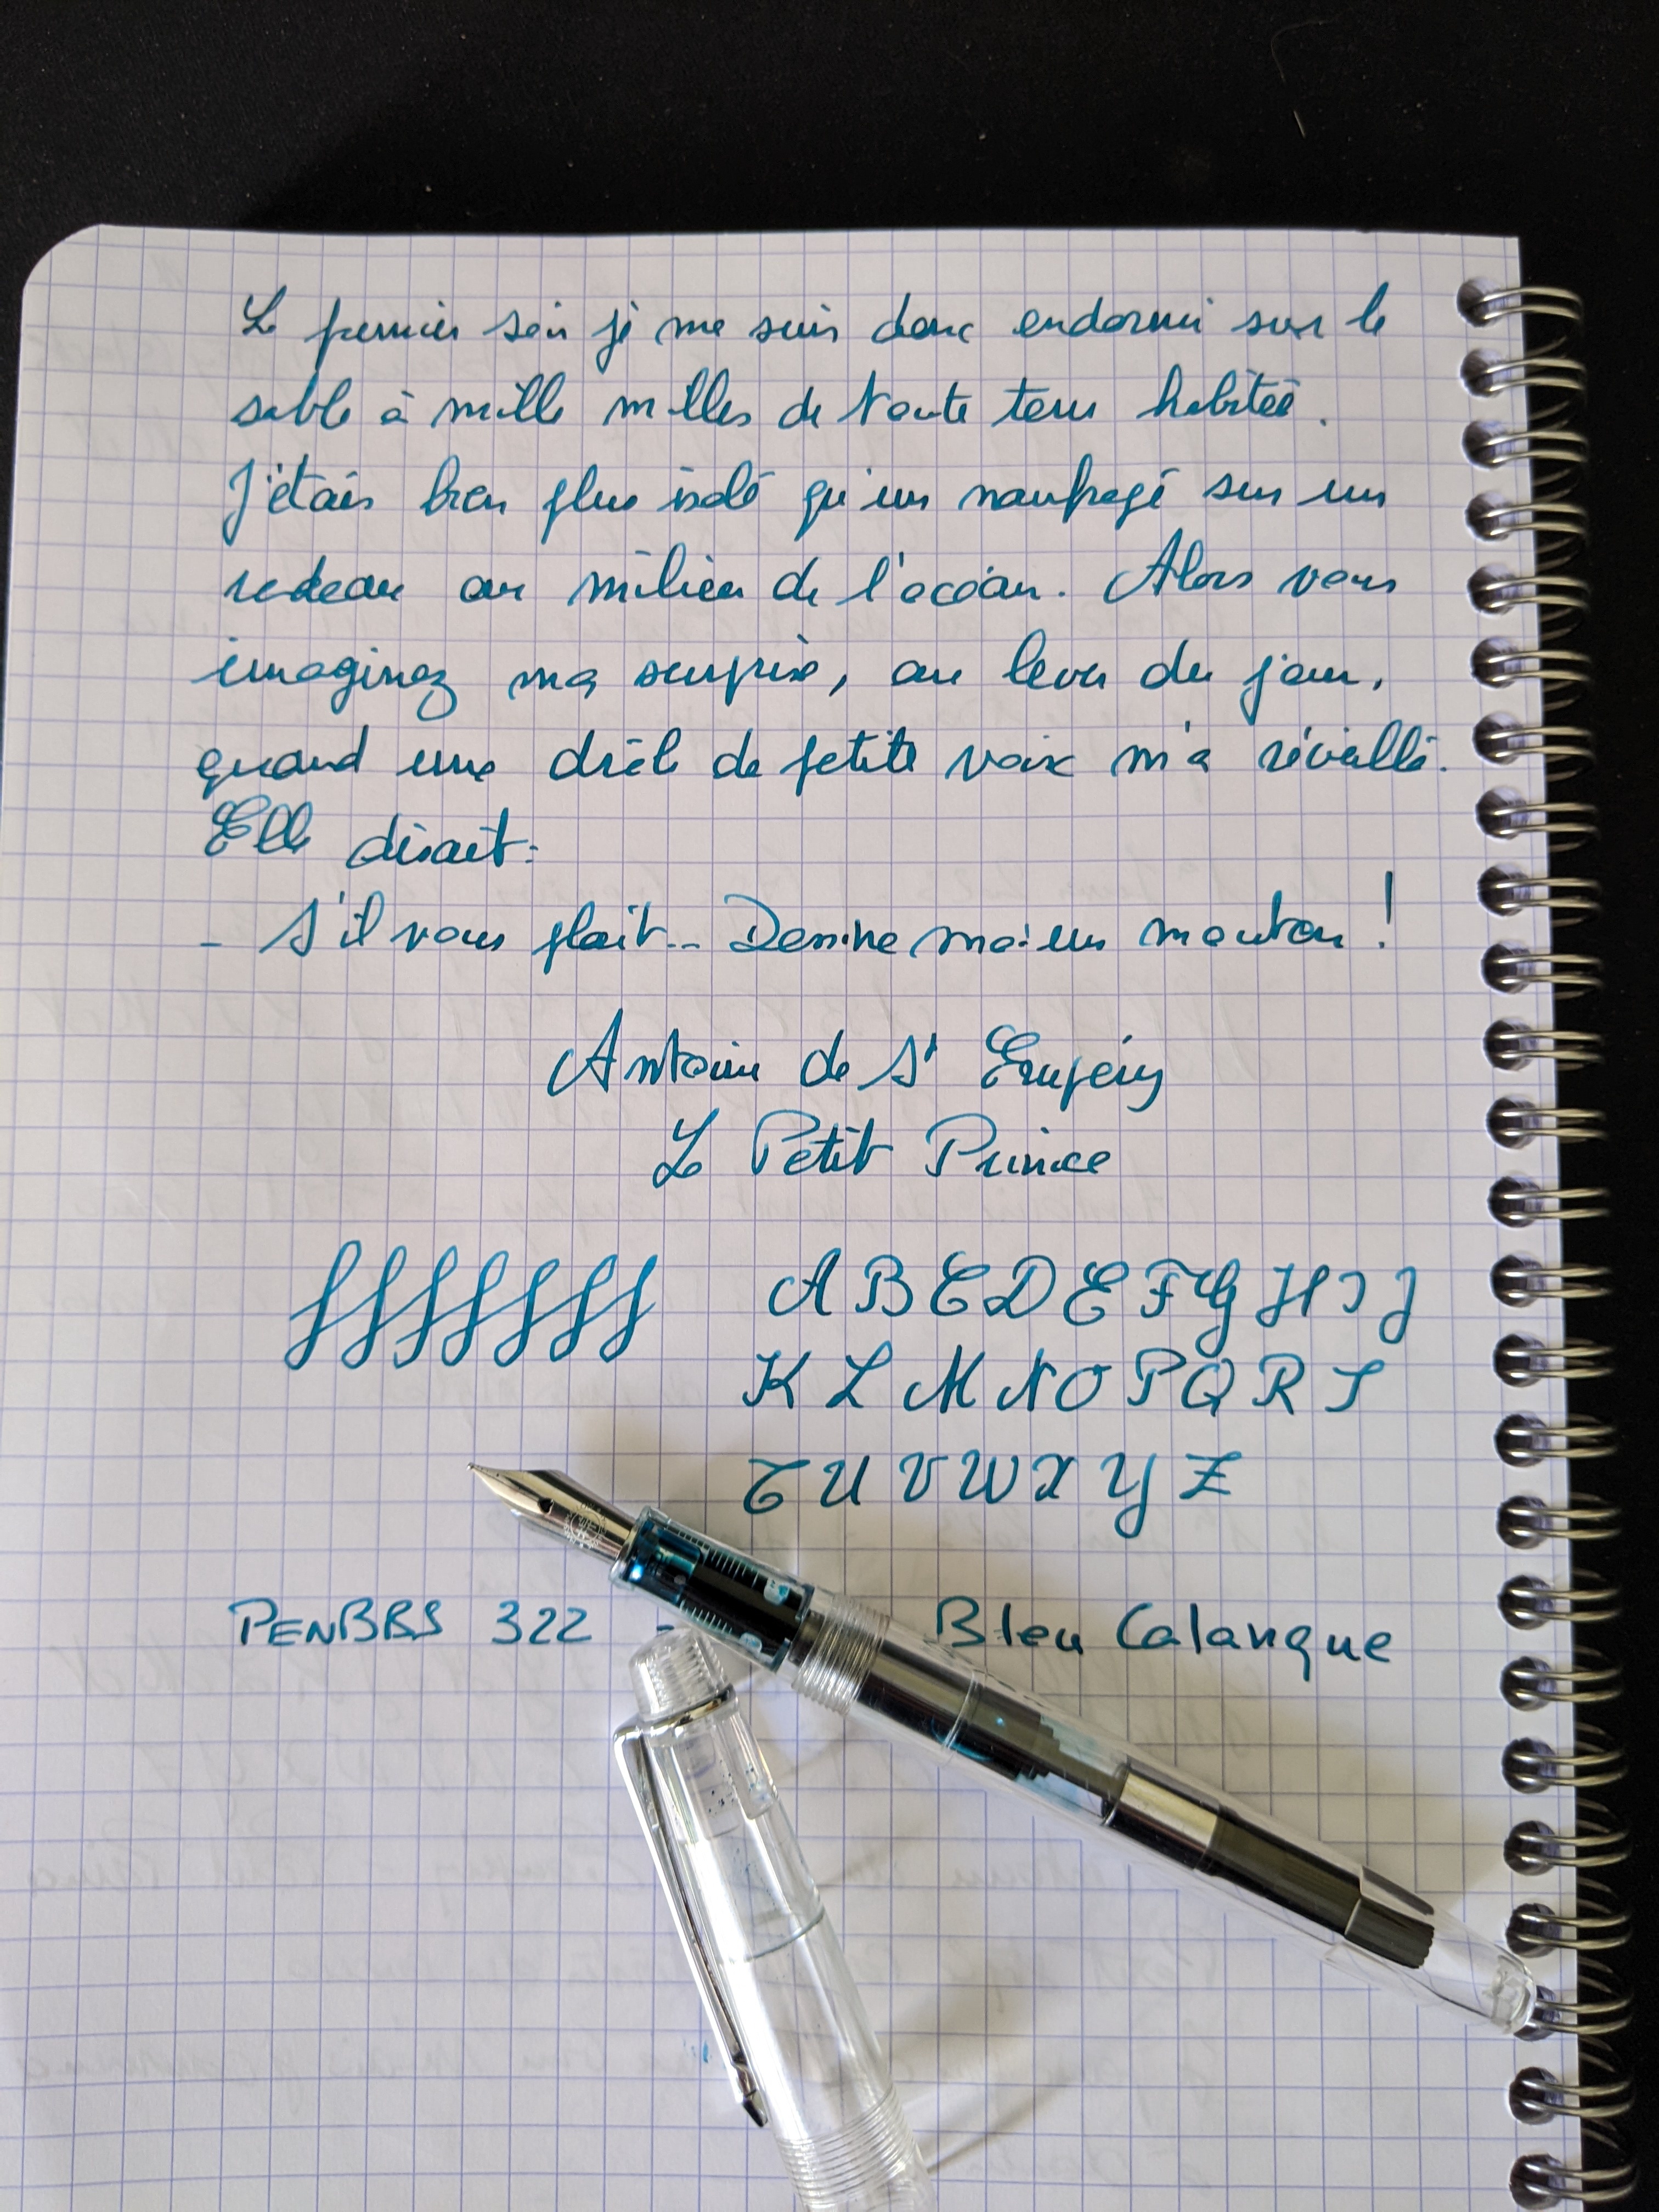 Le premier soir je me suis donc endormi sur le
sable à mille milles de toute terre habitée.
J'étais bien plus isolé qu'un naufragé sur un
radeau au milieu de l'océan. Alors vous
imaginez ma surprise, au lever du jour,
quand une drôle de petite voix m'a réveillé.
Elle disait:
- S'il vous plait... Dessine moi un mouton !
Antoine de St Exupéry
Le Petit Prince
fffffff
A B C D E F G H I J
K L M N O P Q R S
T U V W X Y Z
PENBBS 322 - Bleu Calanque